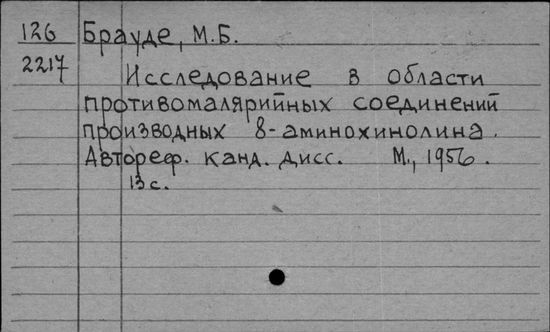 126 Брауде, М.Б.
2217
Исследование в области
противомалярийных соединений
производных 8-аминохинолина.
Автореф. канд. дисс. М., 1956.
13 с.